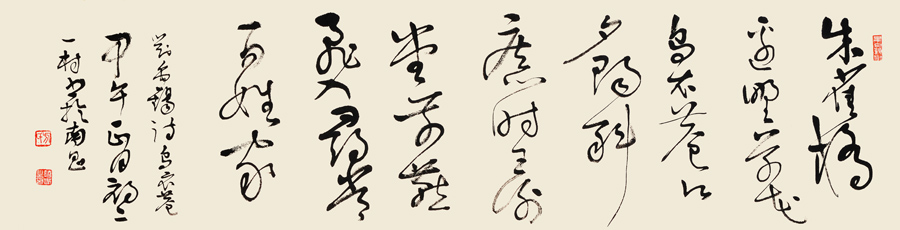 朱雀橋
邊野草花
烏衣巷口
夕陽斜
舊時王謝
堂前燕
飛入尋常
百姓家
劉禹錫詩烏衣巷
甲午正月初二
一村書於南昌